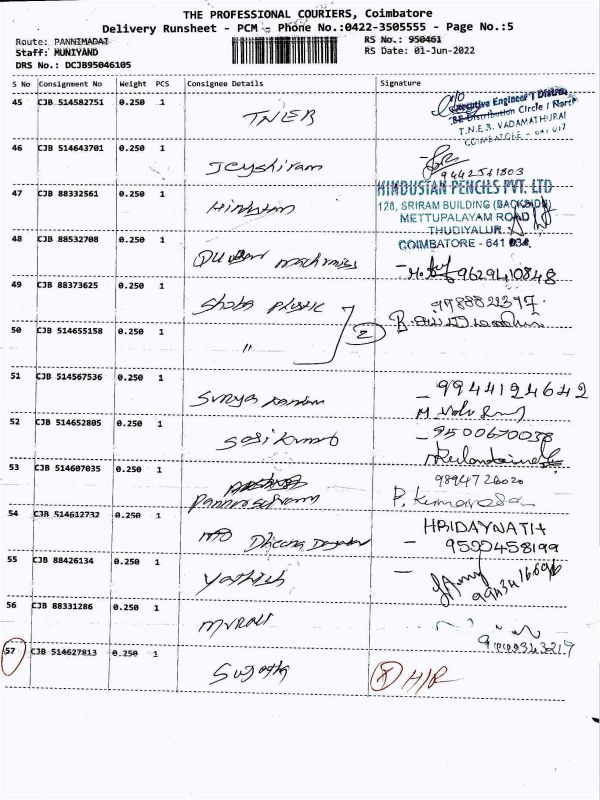 THE PROFESSIONAL COURIERS, Coimbatore
Delivery Runsheet - PCM - Phone No.:0422-3505555 - Page No.:5
Route: PANNIMADAI
RS No.: 950461
Staff: MUNIYAND
RS Date: 01-Jun-2022
DRS No.: DCJB95046105
S No Consignment No Weight PCS Consignee Details Signature
45 CJB 514582751 0.250 1 TNEB
Executive Engineer
Distribution Circle / North
T.N.E.B. VADAMATHURAI
COIMBATORE - 641 017
46 CJB 514643701 0.250 1 Jeyshiram
9442561803
47 CJB 88332561 0.250 1 Hindustan
HINDUSTAN PENCILS PVT. LTD
128, SRIRAM BUILDING (BACKSIDE)
METTUPALAYAM ROAD
THUDIYALUR
COIMBATORE - 641 034.
48 CJB 88532708 0.250 1
9629410848
49 CJB 88373625 0.250 1 Shoba plastic
50 CJB 514655158 0.250 1 "
2
51 CJB 514567536 0.250 1 Surya
9944124642
52 CJB 514652805 0.250 1 Sasikumar
9500670038
53 CJB 514607035 0.250 1
P. Kumaresan
54 CJB 514612732 0.250 1
HRIDAYNATH
9500458199
55 CJB 88426134 0.250 1
56 CJB 88331286 0.250 1 Murali
57 CJB 514627813 0.250 1 Sujatha H/R